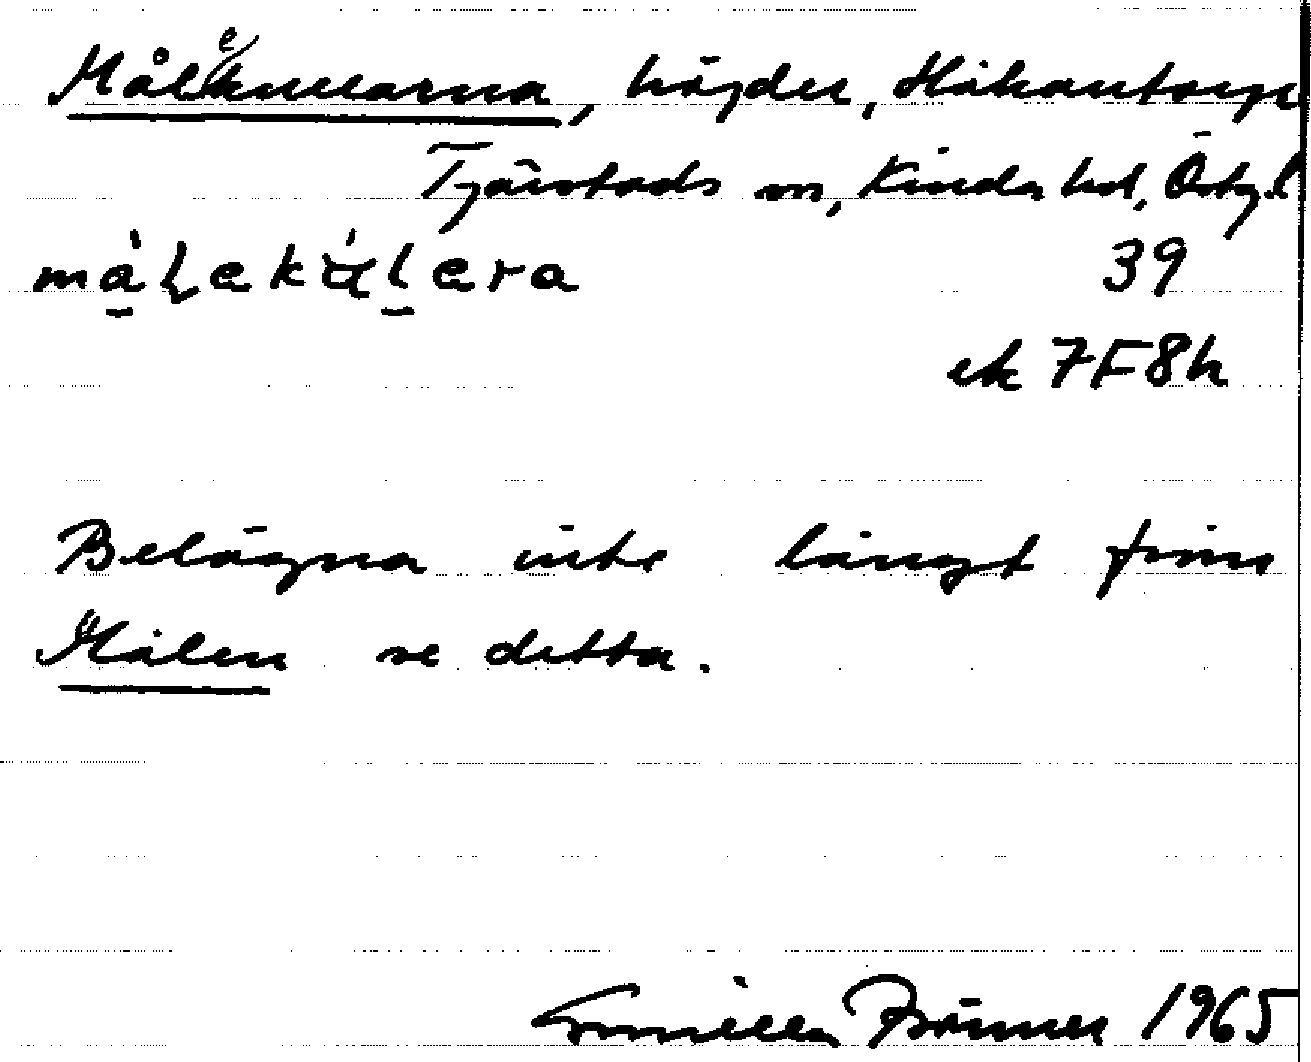 Målekullarna, höjder, Håkantorp
Tjärstads sn, Kinda hd, Östg.l
målekulera 39
ek 7F8h
Belägna inte långt från
Målen se detta.
Gunilla 1965